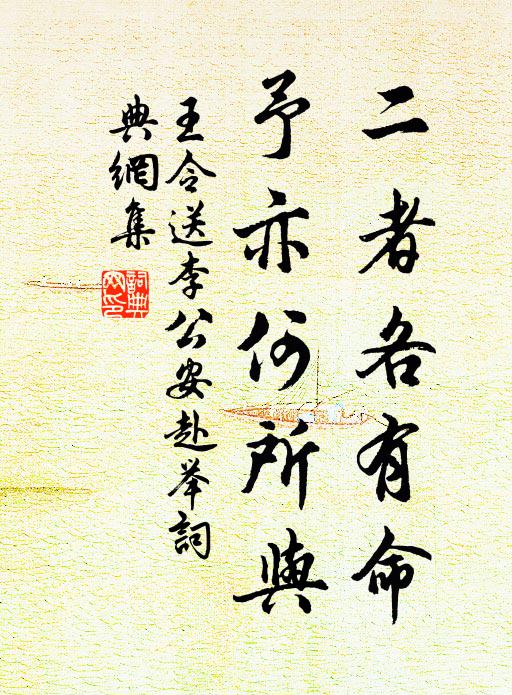 二者各有命
予亦何所與
王令送李公安赴举詞
典網集
詞典網印